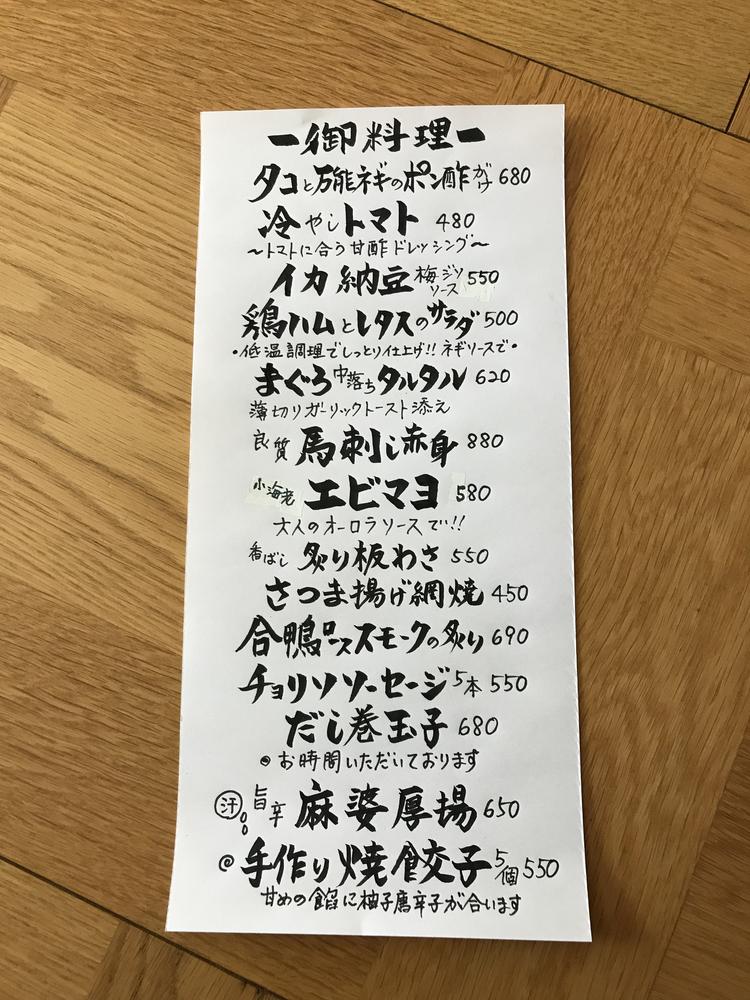 ー御料理ー
タコと万能ネギのポン酢がけ 680
冷やしトマト 480
〜トマトに合う甘酢ドレッシング〜
イカ納豆 梅ジソソース 550
鶏ハムとレタスのサラダ 500
・低温調理でしっとり仕上げ!! ネギソースで・
まぐろ中落ちタルタル 620
薄切りガーリックトースト添え
良質 馬刺し赤身 880
小海老 エビマヨ 580
大人のオーロラソースで!!
香ばし 炙り板わさ 550
さつま揚げ網焼 450
合鴨ロススモークの炙り 690
チョリソソーセージ 5本 550
だし巻玉子 680
◎お時間いただいております
汗 旨辛 麻婆厚揚 650
◎手作り焼餃子 5個 550
甘めの餡に柚子唐辛子が合います